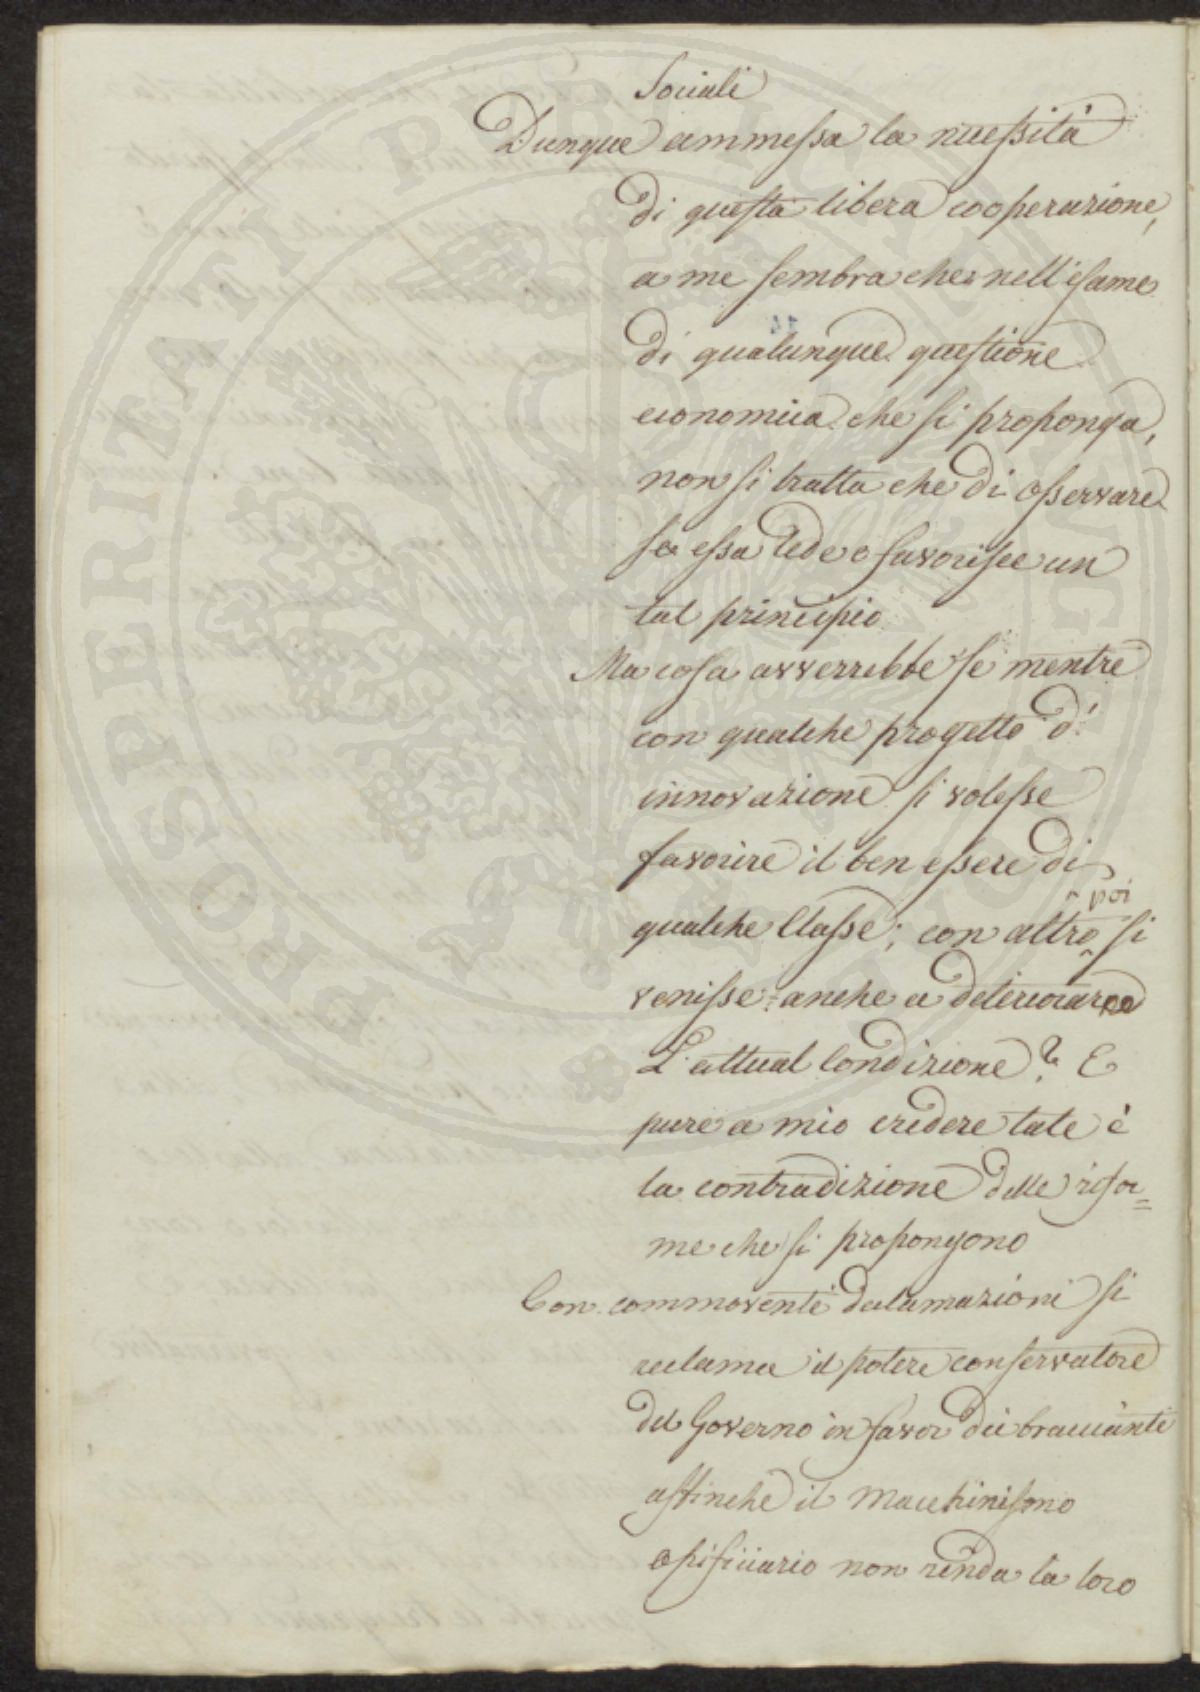 Sociali
Dunque ammessa la necessità
di questa libera cooperazione,
a me sembra che nell'esame
di qualunque questione
economica che si proponga,
non si tratta che di osservare
se essa lede o favorisce un
tal principio
Ma cosa avverrebbe se mentre
con qualche progetto d'
innovazione si volesse
favorire il ben essere di
poi
qualche Classe; con altro si
venisse anche a deteriorarne
L'attual Condizione? E
pure a mio credere tale è
la contradizione delle rifor=
me che si propongono
Con commoventi declamazioni si
reclama il potere conservatore
del Governo in favor dei braccianti
affinche il Macchinismo
opificiario non renda la loro
PROSPERITATI PUBLICAE AUGENDAE